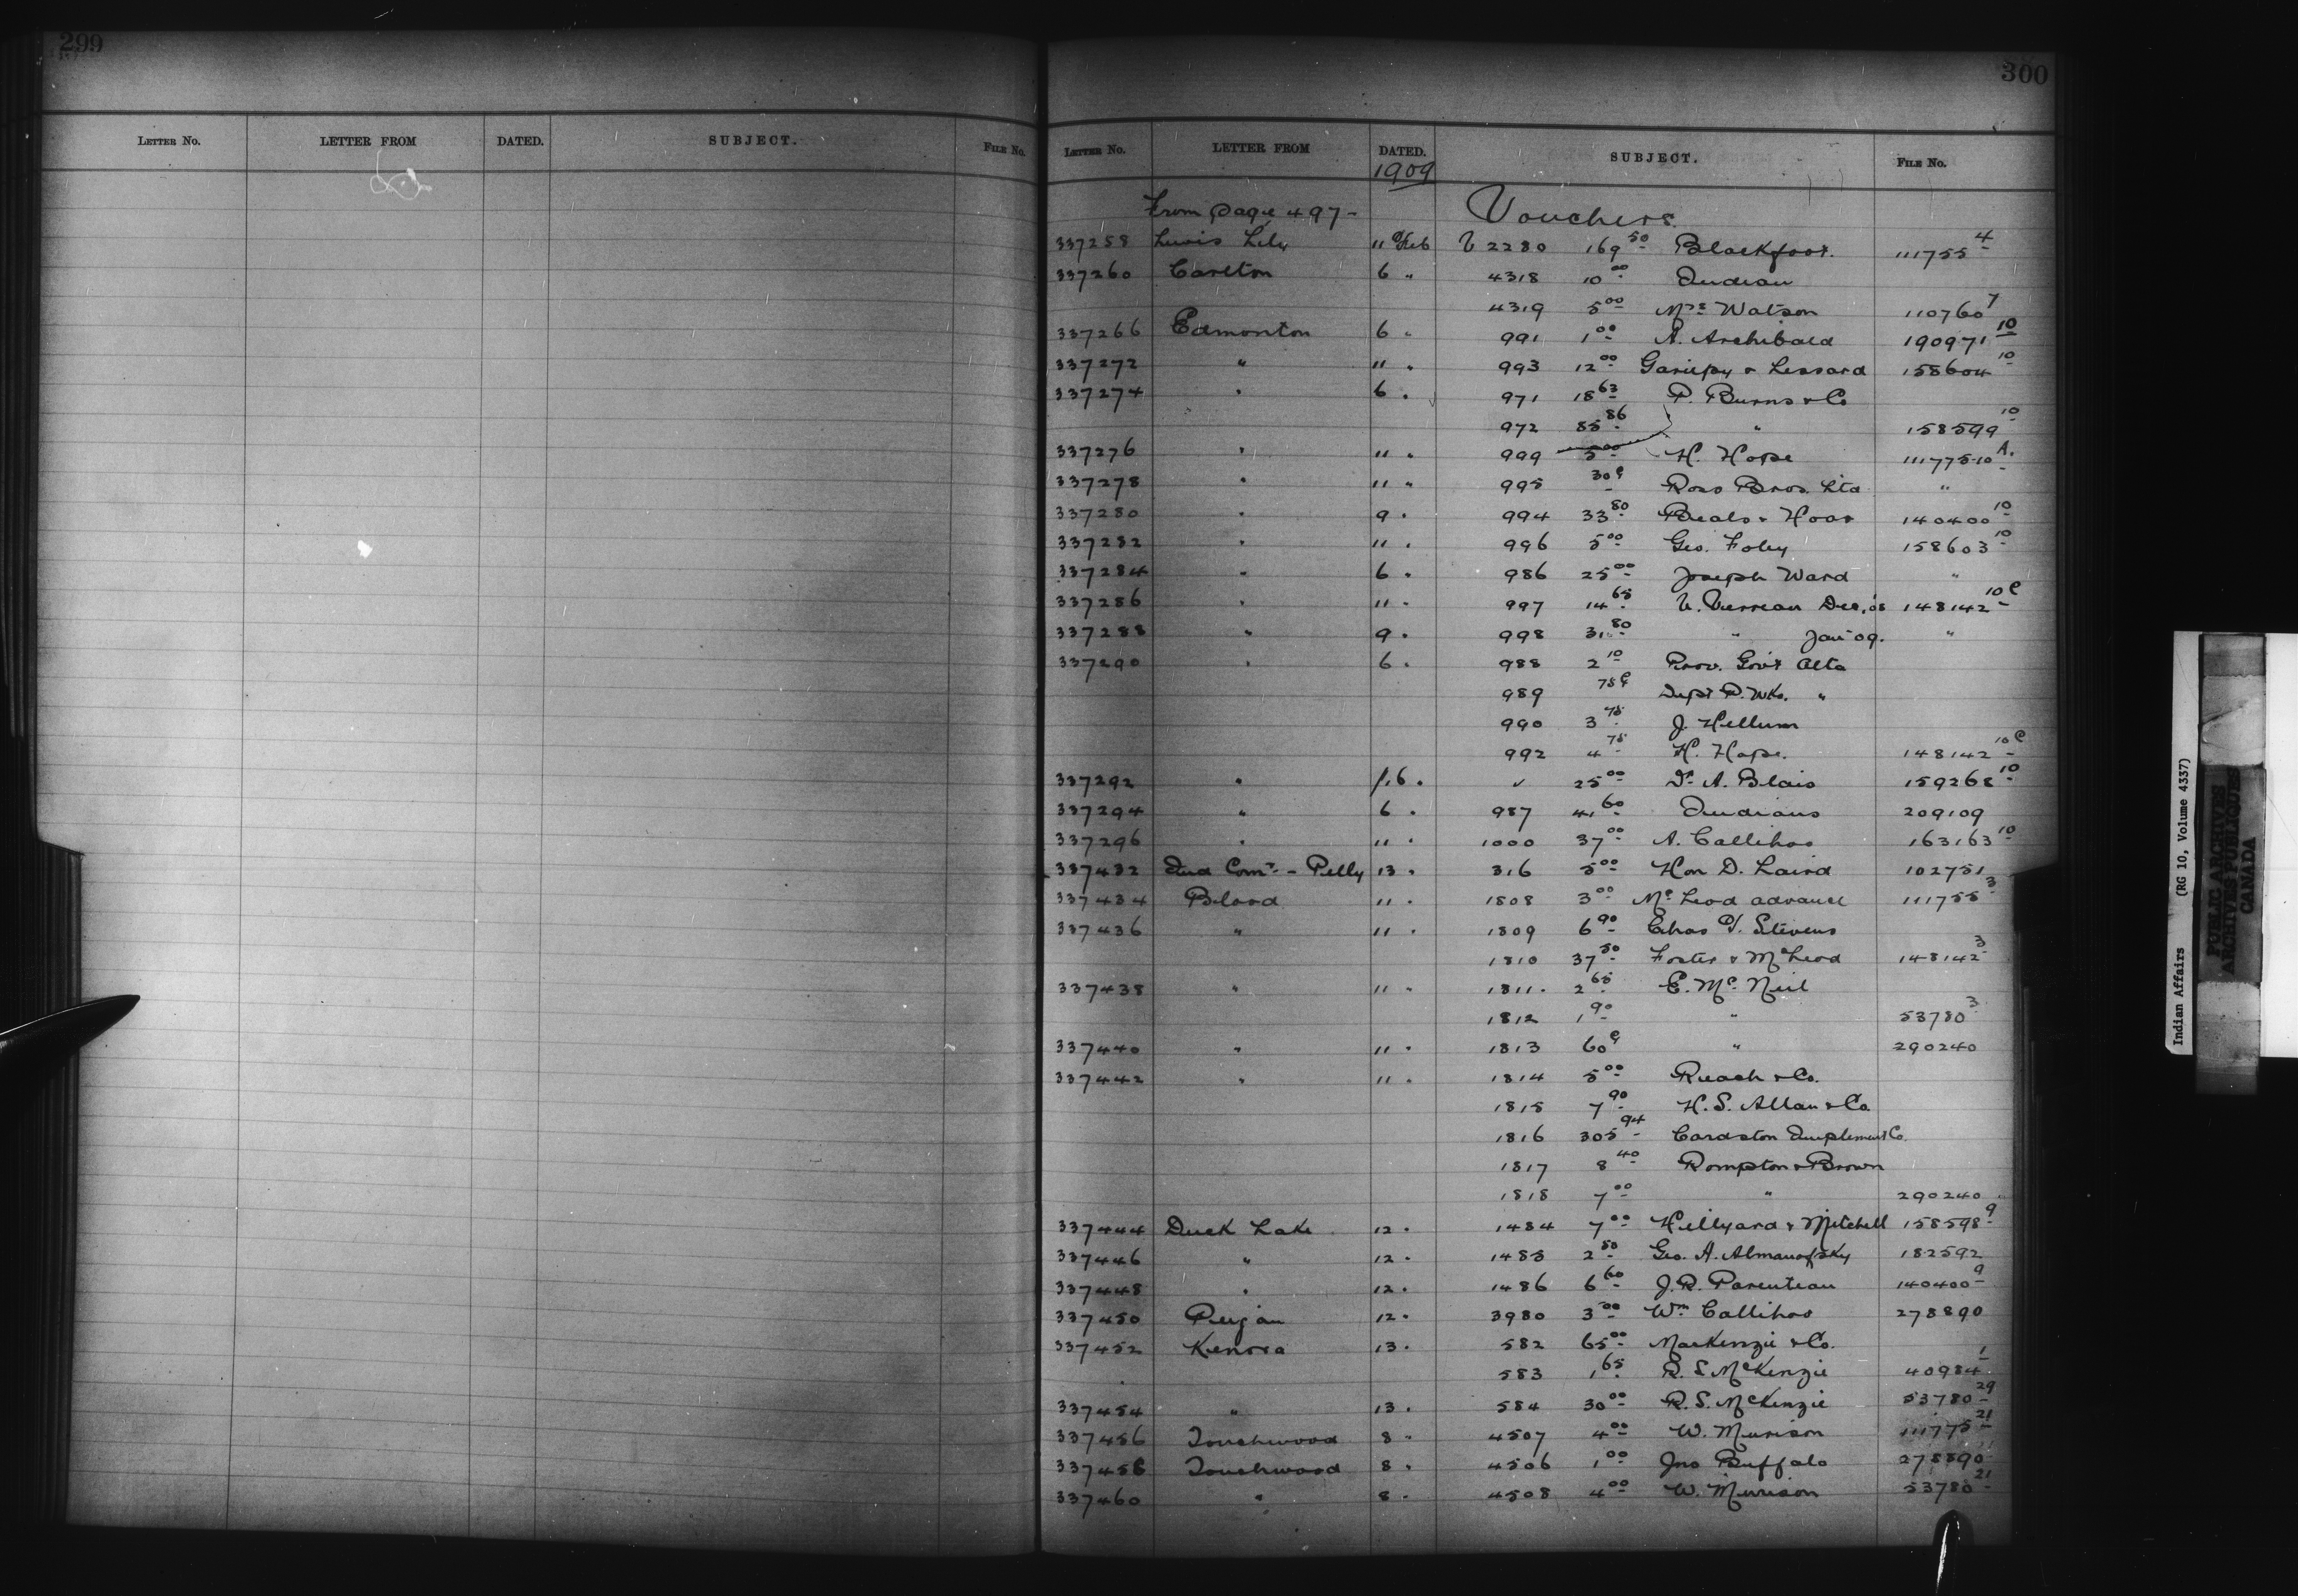 299
LETTER No. LETTER FROM DATED. SUBJECT. FILE No.
300
LETTER No. LETTER FROM DATED. SUBJECT. FILE No.
1909
From page 497- Vouchers
337258 Lewis Lily 11 Feb V 2280 169 50 Blackfoot. 111755 4
337260 Carlton 6 " 4318 10 00 Indian
4319 5 00 Mrs Watson 110760 7
337266 Edmonton 6 " 991 1 00 A. Archibald 190971 10
337272 " 11 " 993 12 00 Gariepy & Lessard 158604 10
337274 " 6 " 971 18 63 P. Burns & Co
972 85 86 " 158599 10
337276 " 11 " 999 5 00 H. Hope 111775-10 A.
337278 " 11 " 995 30c Ross Bros. Ltd "
337280 " 9 " 994 33 80 Beals & Hoar 140400 10
337282 " 11 " 996 5 00 Geo. Foley 158603 10
337284 " 6 " 986 25 00 Joseph Ward "
337286 " 11 " 997 14 65 Dec. '08 148142 10 C
337288 " 9 " 998 31 80 " Jan '09. "
337290 " 6 " 988 2 10 Prov. Gov't Alta
989 75c Dept P. Wks. "
990 3 75 J. Hellum
992 4 75 H. Hope. 148142 10 C
337292 " 6 " ✓ 25 00 Dr A. Blais 159268 10
337294 " 6 " 987 41 60 Indians 209109
337296 " 11 " 1000 37 00 A. Callihoo 163163 10
337432 Ind Comr - Pelly 13 " 316 5 00 Hon D. Laird 102751
337434 Blood 11 " 1808 3 00 McLeod advance 111755 3
337436 " 11 " 1809 6 90 Chas Stevens
1810 37 50 Foster & McLeod 148142 3
337438 " 11 " 1811 2 65 E. McNeil
1812 1 90 " 53780 3
337440 " 11 " 1813 60c " 290240
337442 " 11 " 1814 5 00 Reach & Co.
1815 7 90 H. S. Allan & Co
1816 305 94 Cardston Implement Co.
1817 8 40 Rompton & Brown
1818 7 00 " 290240
337444 Duck Lake 12 " 1484 7 00 Hillyard & Mitchell 158598 9
337446 " 12 " 1485 2 50 Geo. A. Almanofsky 182592
337448 " 12 " 1486 6 60 J. R. Parenteau 140400 9
337450 Peigan 12 " 3980 3 00 Wm Callihoo 278890
337452 Kenora 13 " 582 65 00 MacKenzie & Co.
583 1 65 R. S. McKenzie 40984 1
337454 " 13 " 584 30 00 R. S. McKenzie 53780 29
337456 Touchwood 8 " 4507 4 00 W. Murison 111775 21
337458 Touchwood 8 " 4506 1 00 Jno Buffalo 278890
337460 " 8 " 4508 4 00 W. Murison 53780 21
Indian Affairs (RG 10, Volume 4337)
PUBLIC ARCHIVES
ARCHIVES PUBLIQUES
CANADA